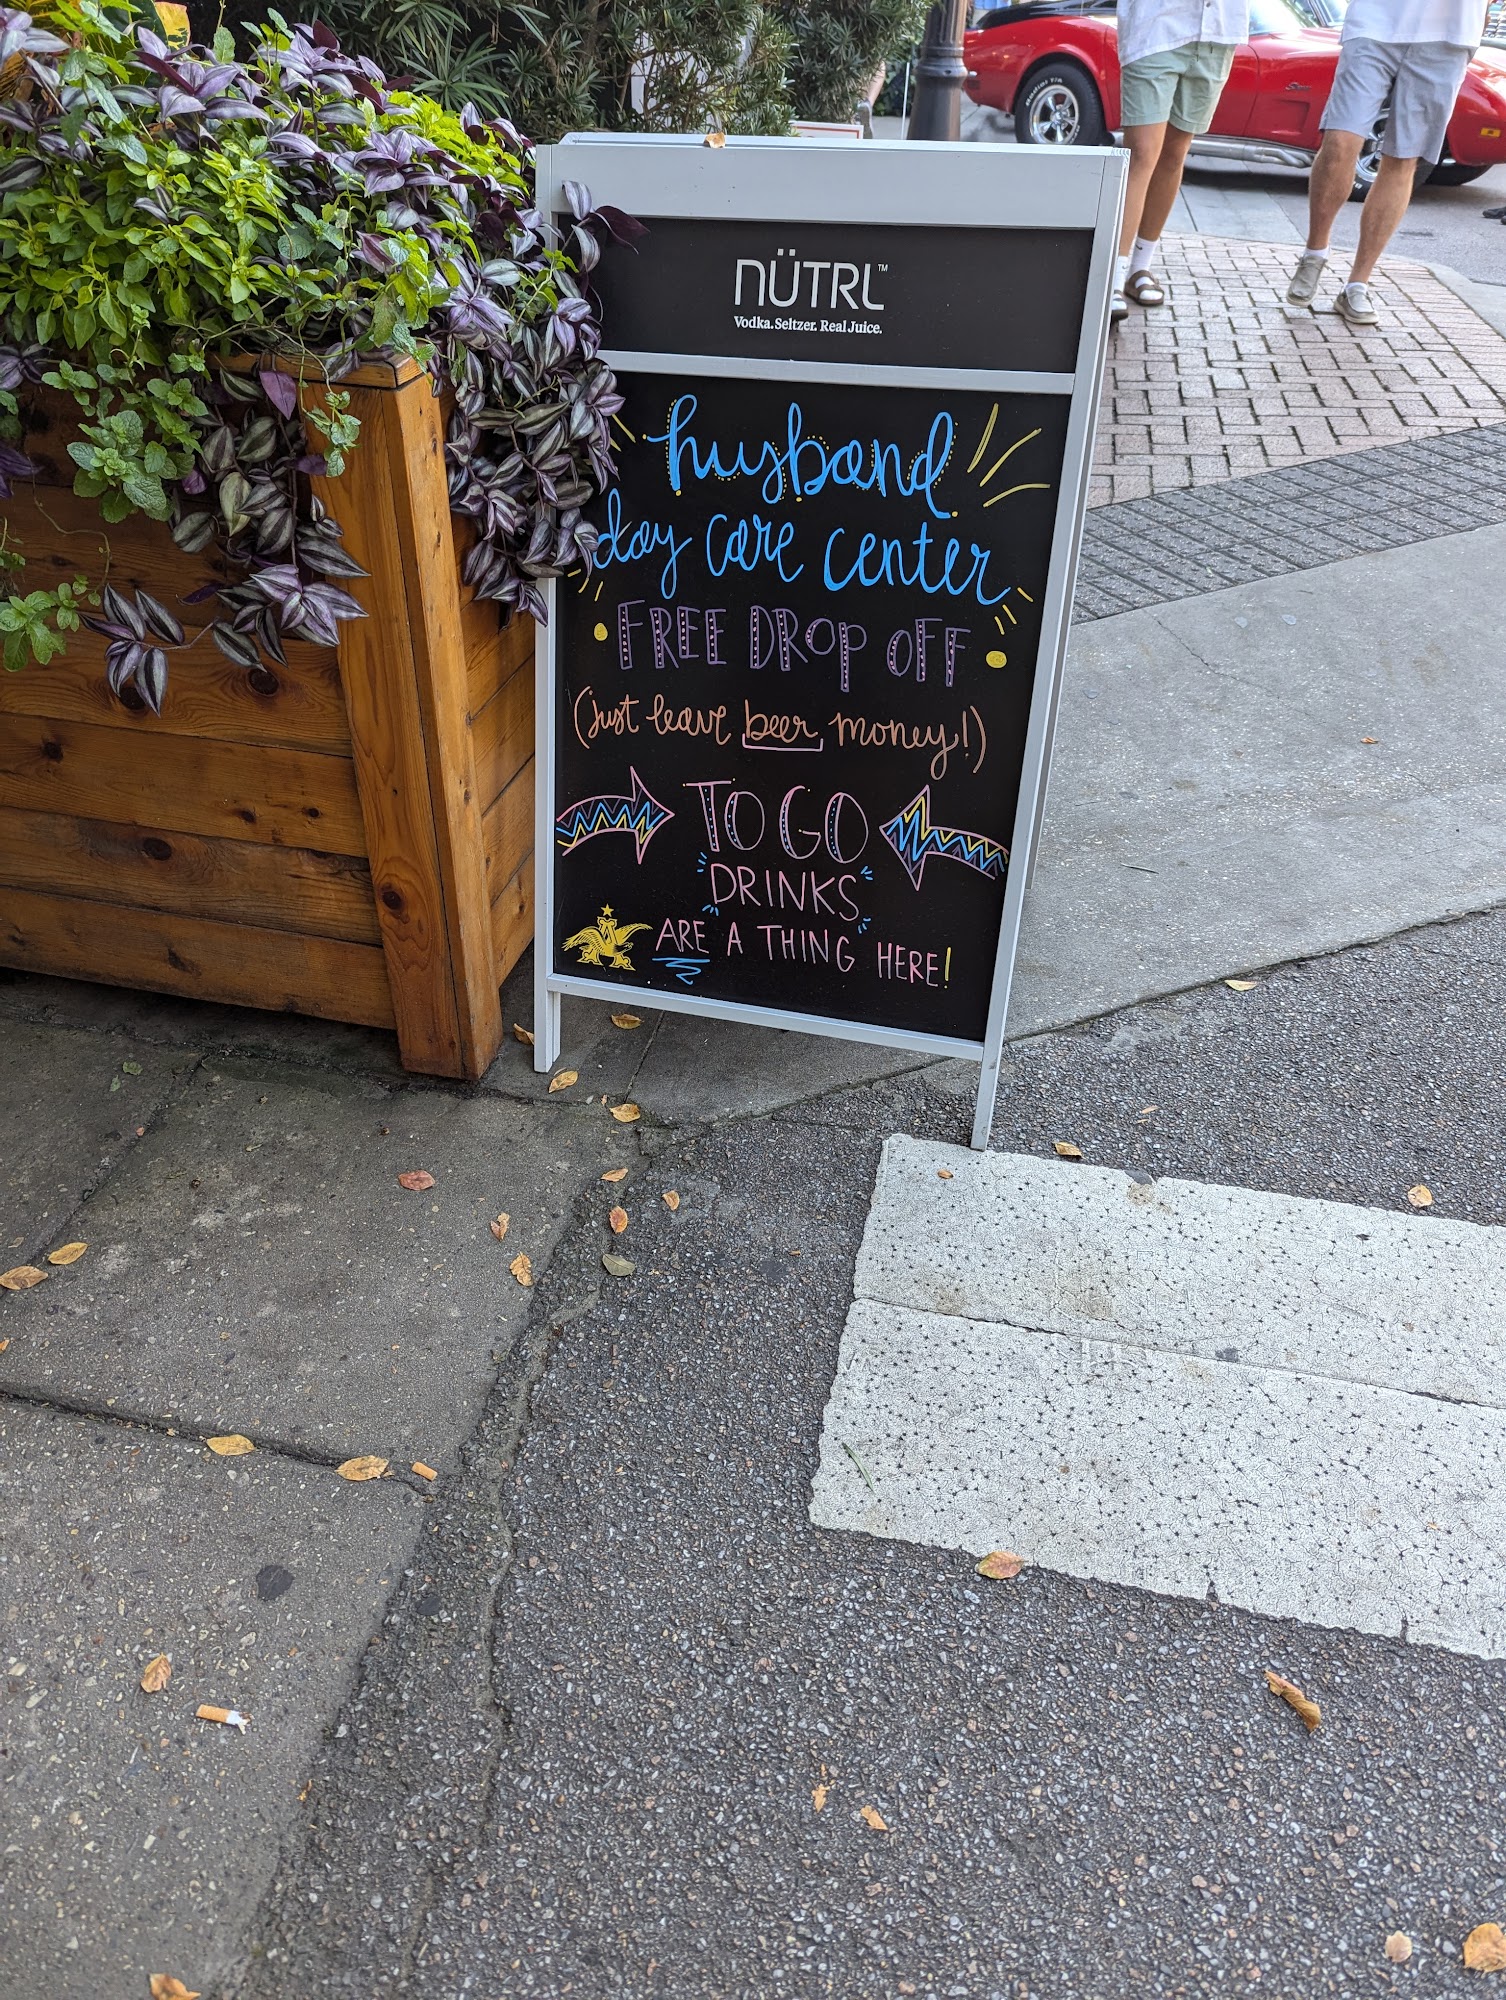 NÜTRL™
Vodka. Seltzer. Real Juice.
husband
day care center
FREE DROP OFF
(just leave beer money!)
TO GO
DRINKS
ARE A THING HERE!